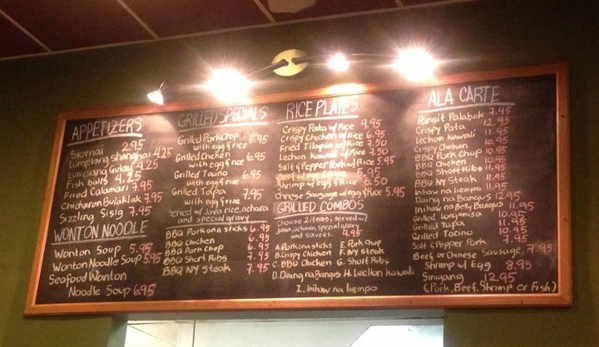 APPETIZERS
Siomai 2.95
Lumpiang Shanghai 4.25
Lumpiang Gulay 4.25
Fish balls 4.25
Fried Calamari 7.95
Chicharon Bulaklak 7.95
Sizzling Sisig 7.95
WONTON NOODLE
Wonton Soup 5.95
Wonton Noodle Soup 5.95
Seafood Wonton
Noodle Soup 6.95
GRILLED SPECIALS
Grilled Porkchop 6.95
with egg & rice
Grilled Chicken 6.95
with egg & rice
Grilled Tocino 6.95
with egg & rice
Grilled Tapa 7.95
with egg & rice
Served w/ Java rice, achara
and special gravy
BBQ Pork on a sticks 6.95
BBQ Chicken 6.95
BBQ Pork Chop 6.95
BBQ Short Ribs 7.95
BBQ NY steak 7.95
RICE PLATES
Crispy Pata w/ Rice 9.95
Crispy Chicken w/ Rice 6.95
Fried Tilapia w/ Rice 7.50
Lechon Kawali w/ Rice 7.50
Salt & Pepper Pork w/ Rice 5.95
Beef w/ egg & Rice
Shrimp w/ egg & Rice 6.50
Chinese Sausage w/ egg & Rice 5.95
GRILLED COMBOS
Choose 2 items, served w/
java rice, achara, special gravy
and sauces. 4.95
A. Pork on a sticks E. Pork Chop
B. Crispy Chicken F. NY steak
C. BBQ Chicken G. Short Ribs
D. Daing na Bangus H. Lechon Kawali
I. Inihaw na liempo
ALA CARTE
Pansit Palabok 7.95
Crispy Pata 12.95
Lechon Kawali 11.95
Crispy Chicken 10.95
BBQ Pork Chop 10.95
BBQ Chicken 11.95
BBQ Short Ribs 11.95
BBQ NY Steak 11.95
Inihaw na liempo 11.95
Daing na Bangus 12.95
Inihaw na Boneless Bangus 11.95
Grilled longanisa 10.95
Grilled Tapa 11.95
Grilled Tocino 10.95
Salt & Pepper Pork 7.95
Beef or Chinese Sausage 7.95
Shrimp w/ Egg 8.95
Sinigang 12.95
(Pork, Beef, Shrimp or Fish)